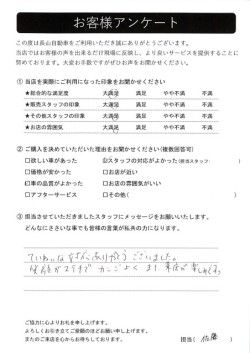 お客様アンケート
この度は長山自動車をご利用いただき誠にありがとうございます。
当店ではお客様の声を出来るだけ現場に反映し、より良いサービスを提供することに
努めております。大変お手数ですがぜひお声をお聞かせください。
① 当店を実際にご利用になった印象をお聞かせください
★総合的な満足度 大満足 満足 やや不満 不満
★販売スタッフの印象 大満足 満足 やや不満 不満
★その他スタッフの印象 大満足 満足 やや不満 不満
★お店の雰囲気 大満足 満足 やや不満 不満
② ご購入を決めていただいた理由をお聞かせください(複数回答可)
□欲しい車があった ☑スタッフの対応がよかった(担当スタッフ: )
□価格が安かった □お店が近い
☑車の品質がよかった □お店の雰囲気がいい
□アフターサービス □その他( )
③ 担当させていただきましたスタッフにメッセージをお願いいたします。
どんなにささいな事でも皆様の言葉が私共の力になります。
ていねいな ありがとうございました。
笑顔がステキで カンジよく また 来店が楽しみです。
ご協力に心よりお礼を申し上げます。
よろしくお引き立てご愛顧のほどお願い申し上げます。
またのご来店を心からお待ちしております。
担当( 佐藤 )